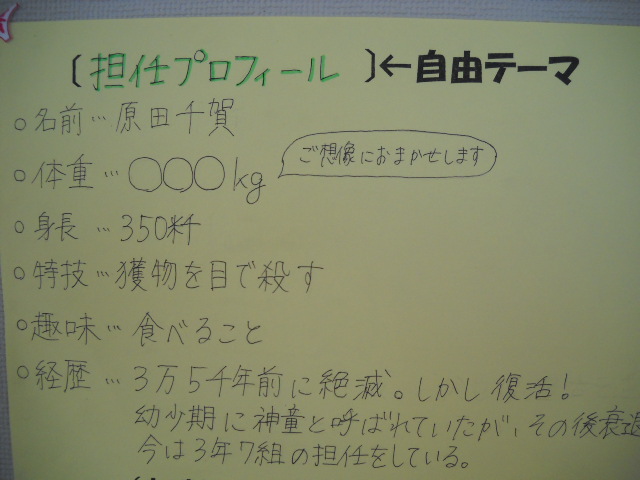 〔担任プロフィール〕←自由テーマ
○名前…原田千賀
○体重…○○○kg ご想像におまかせします
○身長…350粁
○特技…獲物を目で殺す
○趣味…食べること
○経歴…3万5千年前に絶滅。しかし復活!
幼少期に神童と呼ばれていたが、その後衰退
今は3年7組の担任をしている。